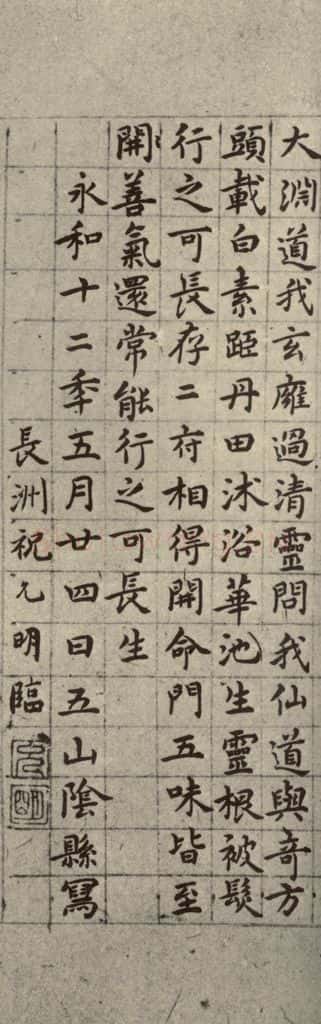 大淵道我玄廱過清靈問我仙道與奇方
頭載白素距丹田沐浴華池生靈根被髮
行之可長存二府相得開命門五味皆至
開善氣還常能行之可長生
永和十二秊五月廿四日五山陰縣寫
長洲祝允明臨
允明